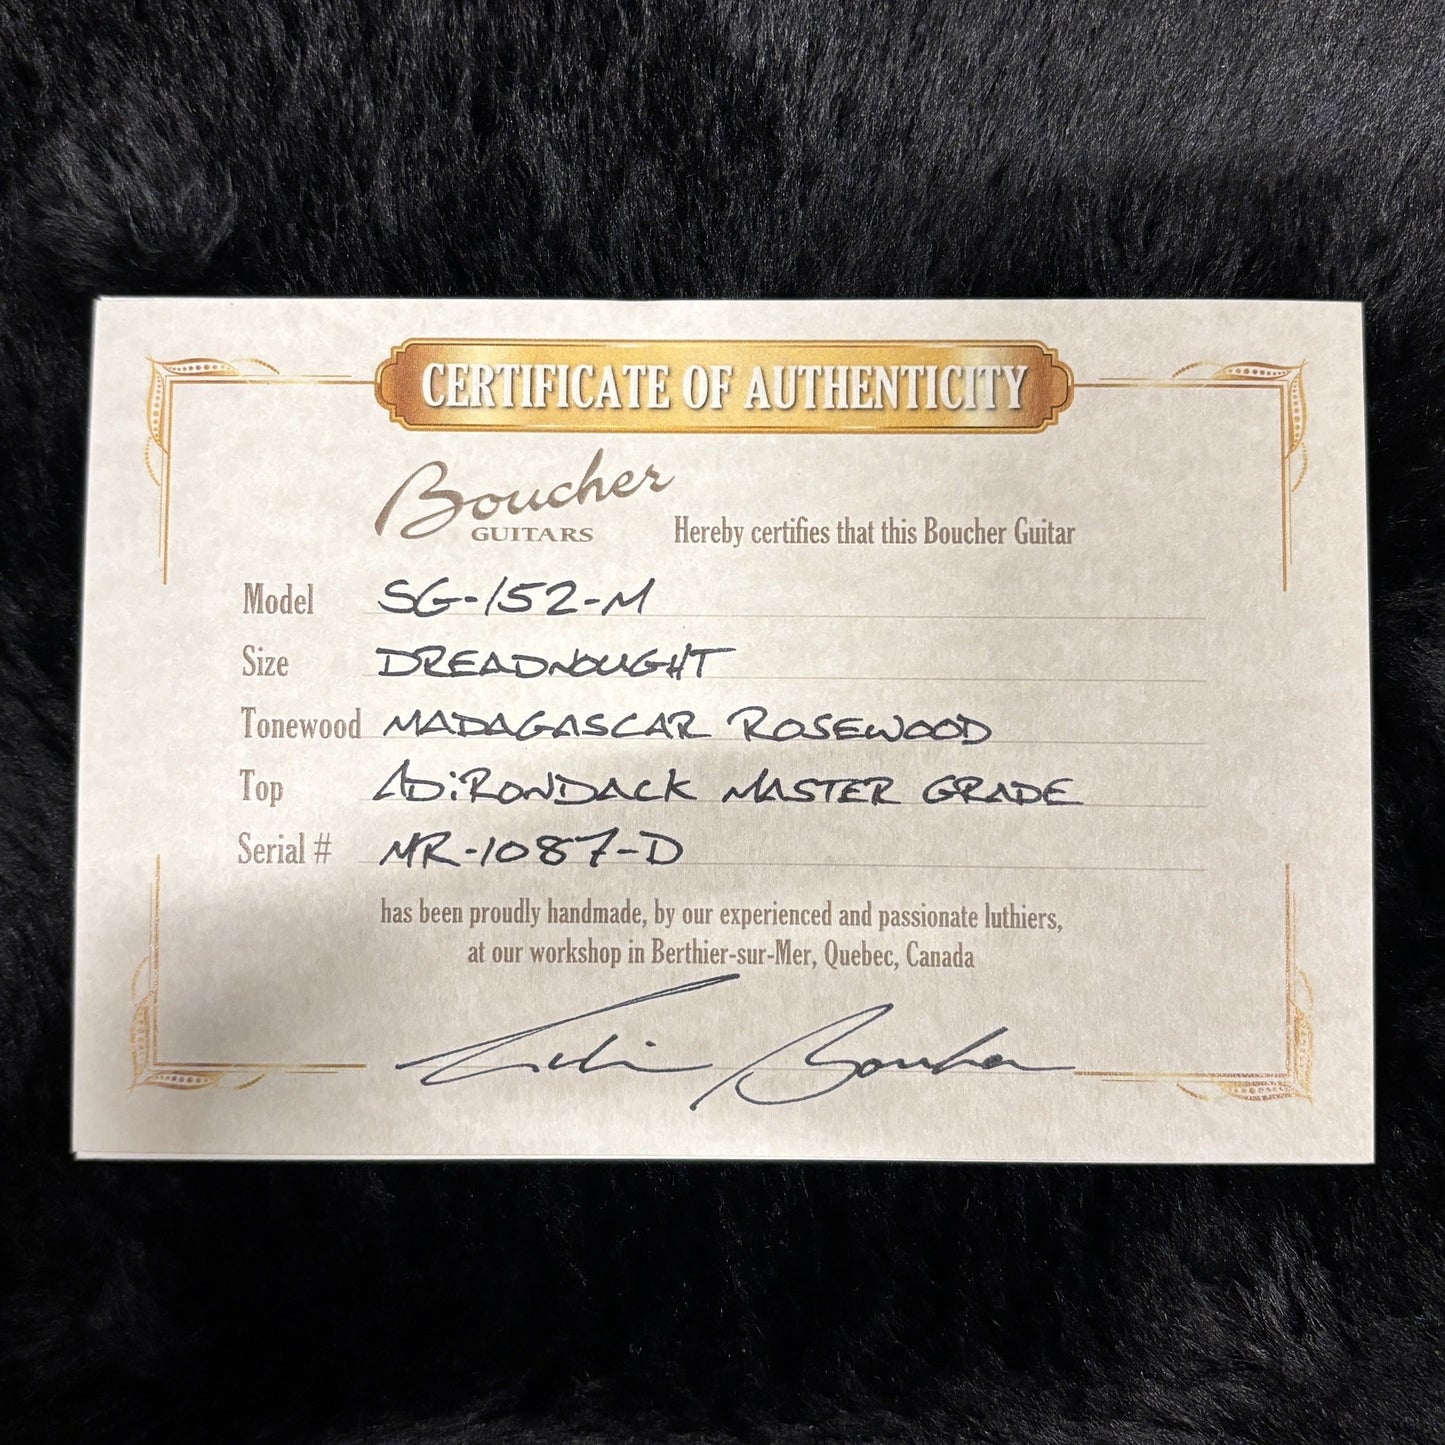 CERTIFICATE OF AUTHENTICITY
Boucher
GUITARS
Hereby certifies that this Boucher Guitar
Model SG-152-M
Size DREADNOUGHT
Tonewood MADAGASCAR ROSEWOOD
Top ADiRONDACK MASTER GRADE
Serial # MR-1087-D
has been proudly handmade, by our experienced and passionate luthiers,
at our workshop in Berthier-sur-Mer, Quebec, Canada
Boucher